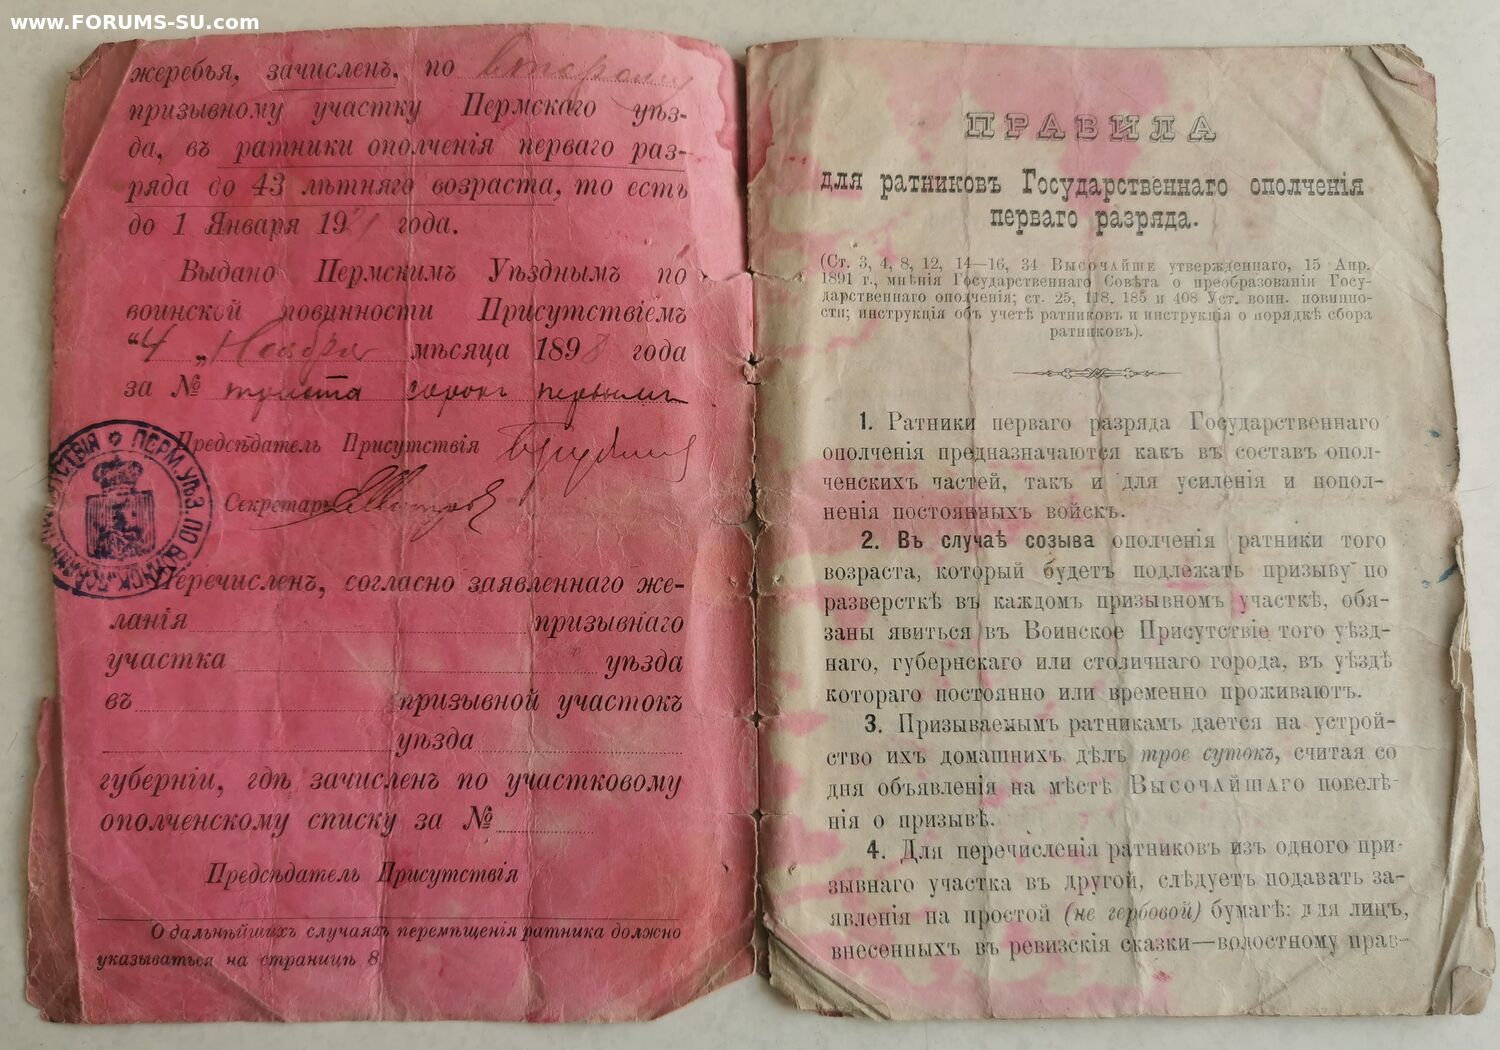 www.FORUMS-SU.com
жеребья, зачисленъ, по второму
призывному участку Пермскаго уѣз-
да, въ ратники ополченія перваго раз-
ряда до 43 лѣтняго возраста, то есть
до 1 Января 19 года.
Выдано Пермскимъ Уѣзднымъ по
воинской повинности Присутствіемъ
"4 „ Ноября мѣсяца 1898 года
за № триста сорокъ первымъ
Предсѣдатель Присутствія
Секретарь
ПЕРМ. УѢЗ. ПО ВОИНСК.
Перечисленъ, согласно заявленнаго же-
ланія призывнаго
участка уѣзда
въ призывной участокъ
уѣзда
губерніи, гдѣ зачисленъ по участковому
ополченскому списку за №
Предсѣдатель Присутствія
О дальнѣйшихъ случаяхъ перемѣщенія ратника должно
указываться на страницѣ 8.
ПРАВИЛА
для ратниковъ Государственнаго ополченія
перваго разряда.
(Ст. 3, 4, 8, 12, 14—16, 34 Высочайше утвержденнаго, 15 Апр.
1891 г., мнѣнія Государственнаго Совѣта о преобразованіи Госу-
дарственнаго ополченія; ст. 25, 118, 185 и 408 Уст. воин. повинно-
сти; инструкція объ учетѣ ратниковъ и инструкція о порядкѣ сбора
ратниковъ).
1. Ратники перваго разряда Государственнаго
ополченія предназначаются какъ въ составъ опол-
ченскихъ частей, такъ и для усиленія и попол-
ненія постоянныхъ войскъ.
2. Въ случаѣ созыва ополченія ратники того
возраста, который будетъ подлежать призыву по
разверсткѣ въ каждомъ призывномъ участкѣ, обя-
заны явиться въ Воинское Присутствіе того уѣзд-
наго, губернскаго или столичнаго города, въ уѣздѣ
котораго постоянно или временно проживаютъ.
3. Призываемымъ ратникамъ дается на устрой-
ство ихъ домашнихъ дѣлъ трое сутокъ, считая со
дня объявленія на мѣстѣ Высочайшаго повелѣ-
нія о призывѣ.
4. Для перечисленія ратниковъ изъ одного при-
зывнаго участка въ другой, слѣдуетъ подавать за-
явленія на простой (не гербовой) бумагѣ: для лицъ,
внесенныхъ въ ревизскія сказки—волостному прав-